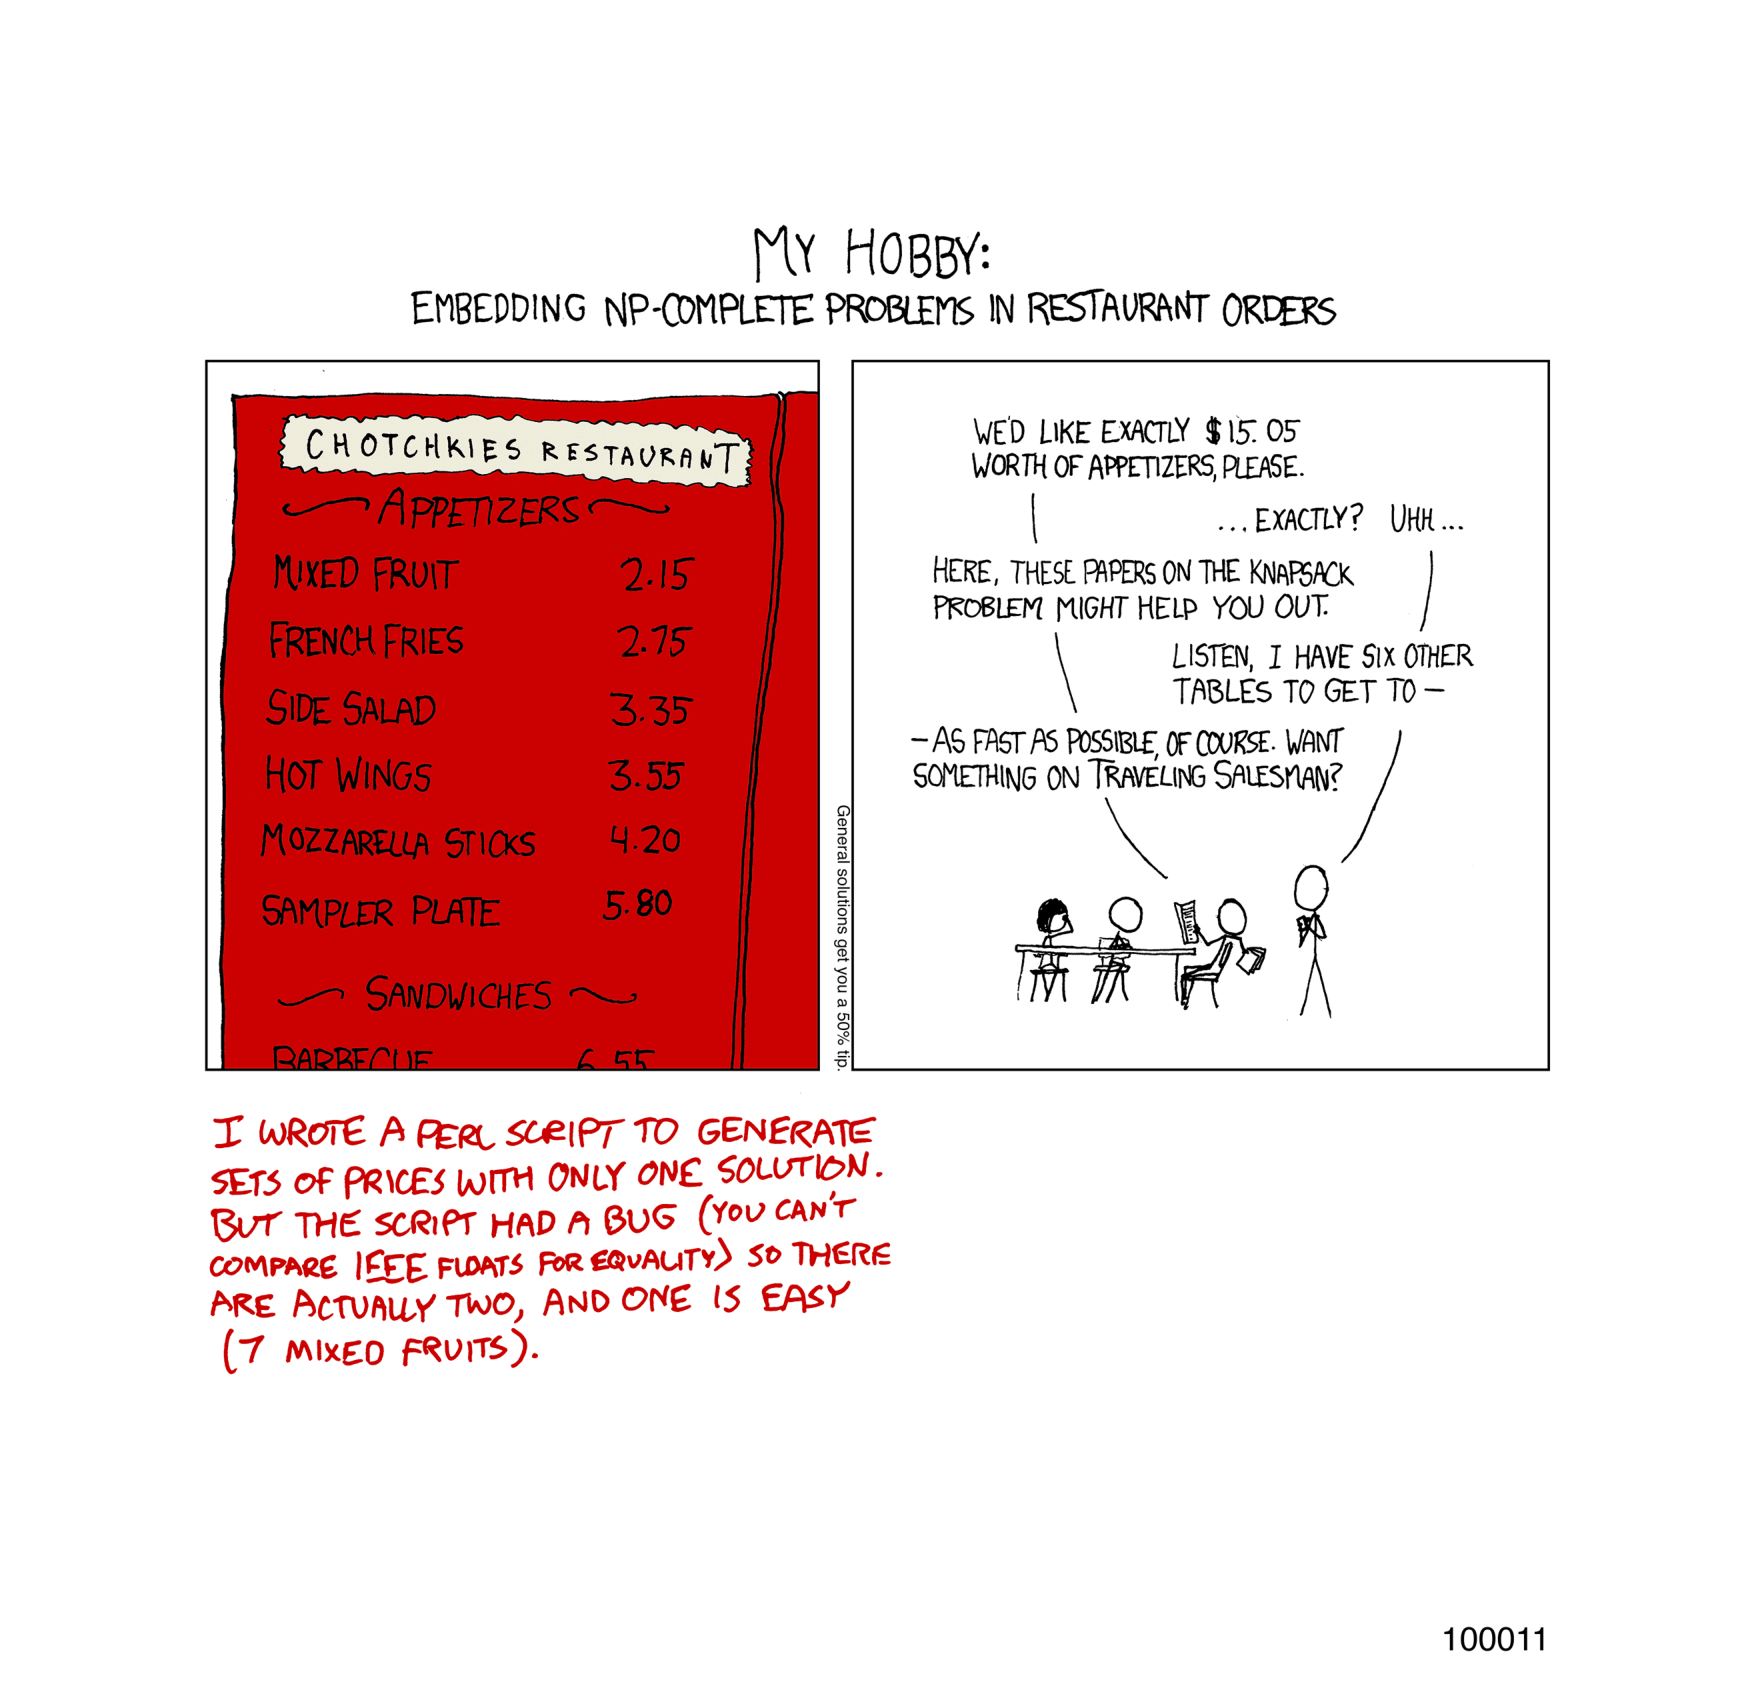 MY HOBBY:
EMBEDDING NP-COMPLETE PROBLEMS IN RESTAURANT ORDERS
CHOTCHKIES RESTAURANT
APPETIZERS
MIXED FRUIT 2.15
FRENCH FRIES 2.75
SIDE SALAD 3.35
HOT WINGS 3.55
MOZZARELLA STICKS 4.20
SAMPLER PLATE 5.80
SANDWICHES
BARBECUE 6.55
General solutions get you a 50% tip.
WE'D LIKE EXACTLY $15.05
WORTH OF APPETIZERS, PLEASE.
...EXACTLY? UHH...
HERE, THESE PAPERS ON THE KNAPSACK
PROBLEM MIGHT HELP YOU OUT.
LISTEN, I HAVE SIX OTHER
TABLES TO GET TO —
—AS FAST AS POSSIBLE, OF COURSE. WANT
SOMETHING ON TRAVELING SALESMAN?
I WROTE A PERL SCRIPT TO GENERATE
SETS OF PRICES WITH ONLY ONE SOLUTION.
BUT THE SCRIPT HAD A BUG (YOU CAN'T
COMPARE IEEE FLOATS FOR EQUALITY) SO THERE
ARE ACTUALLY TWO, AND ONE IS EASY
(7 MIXED FRUITS).
100011